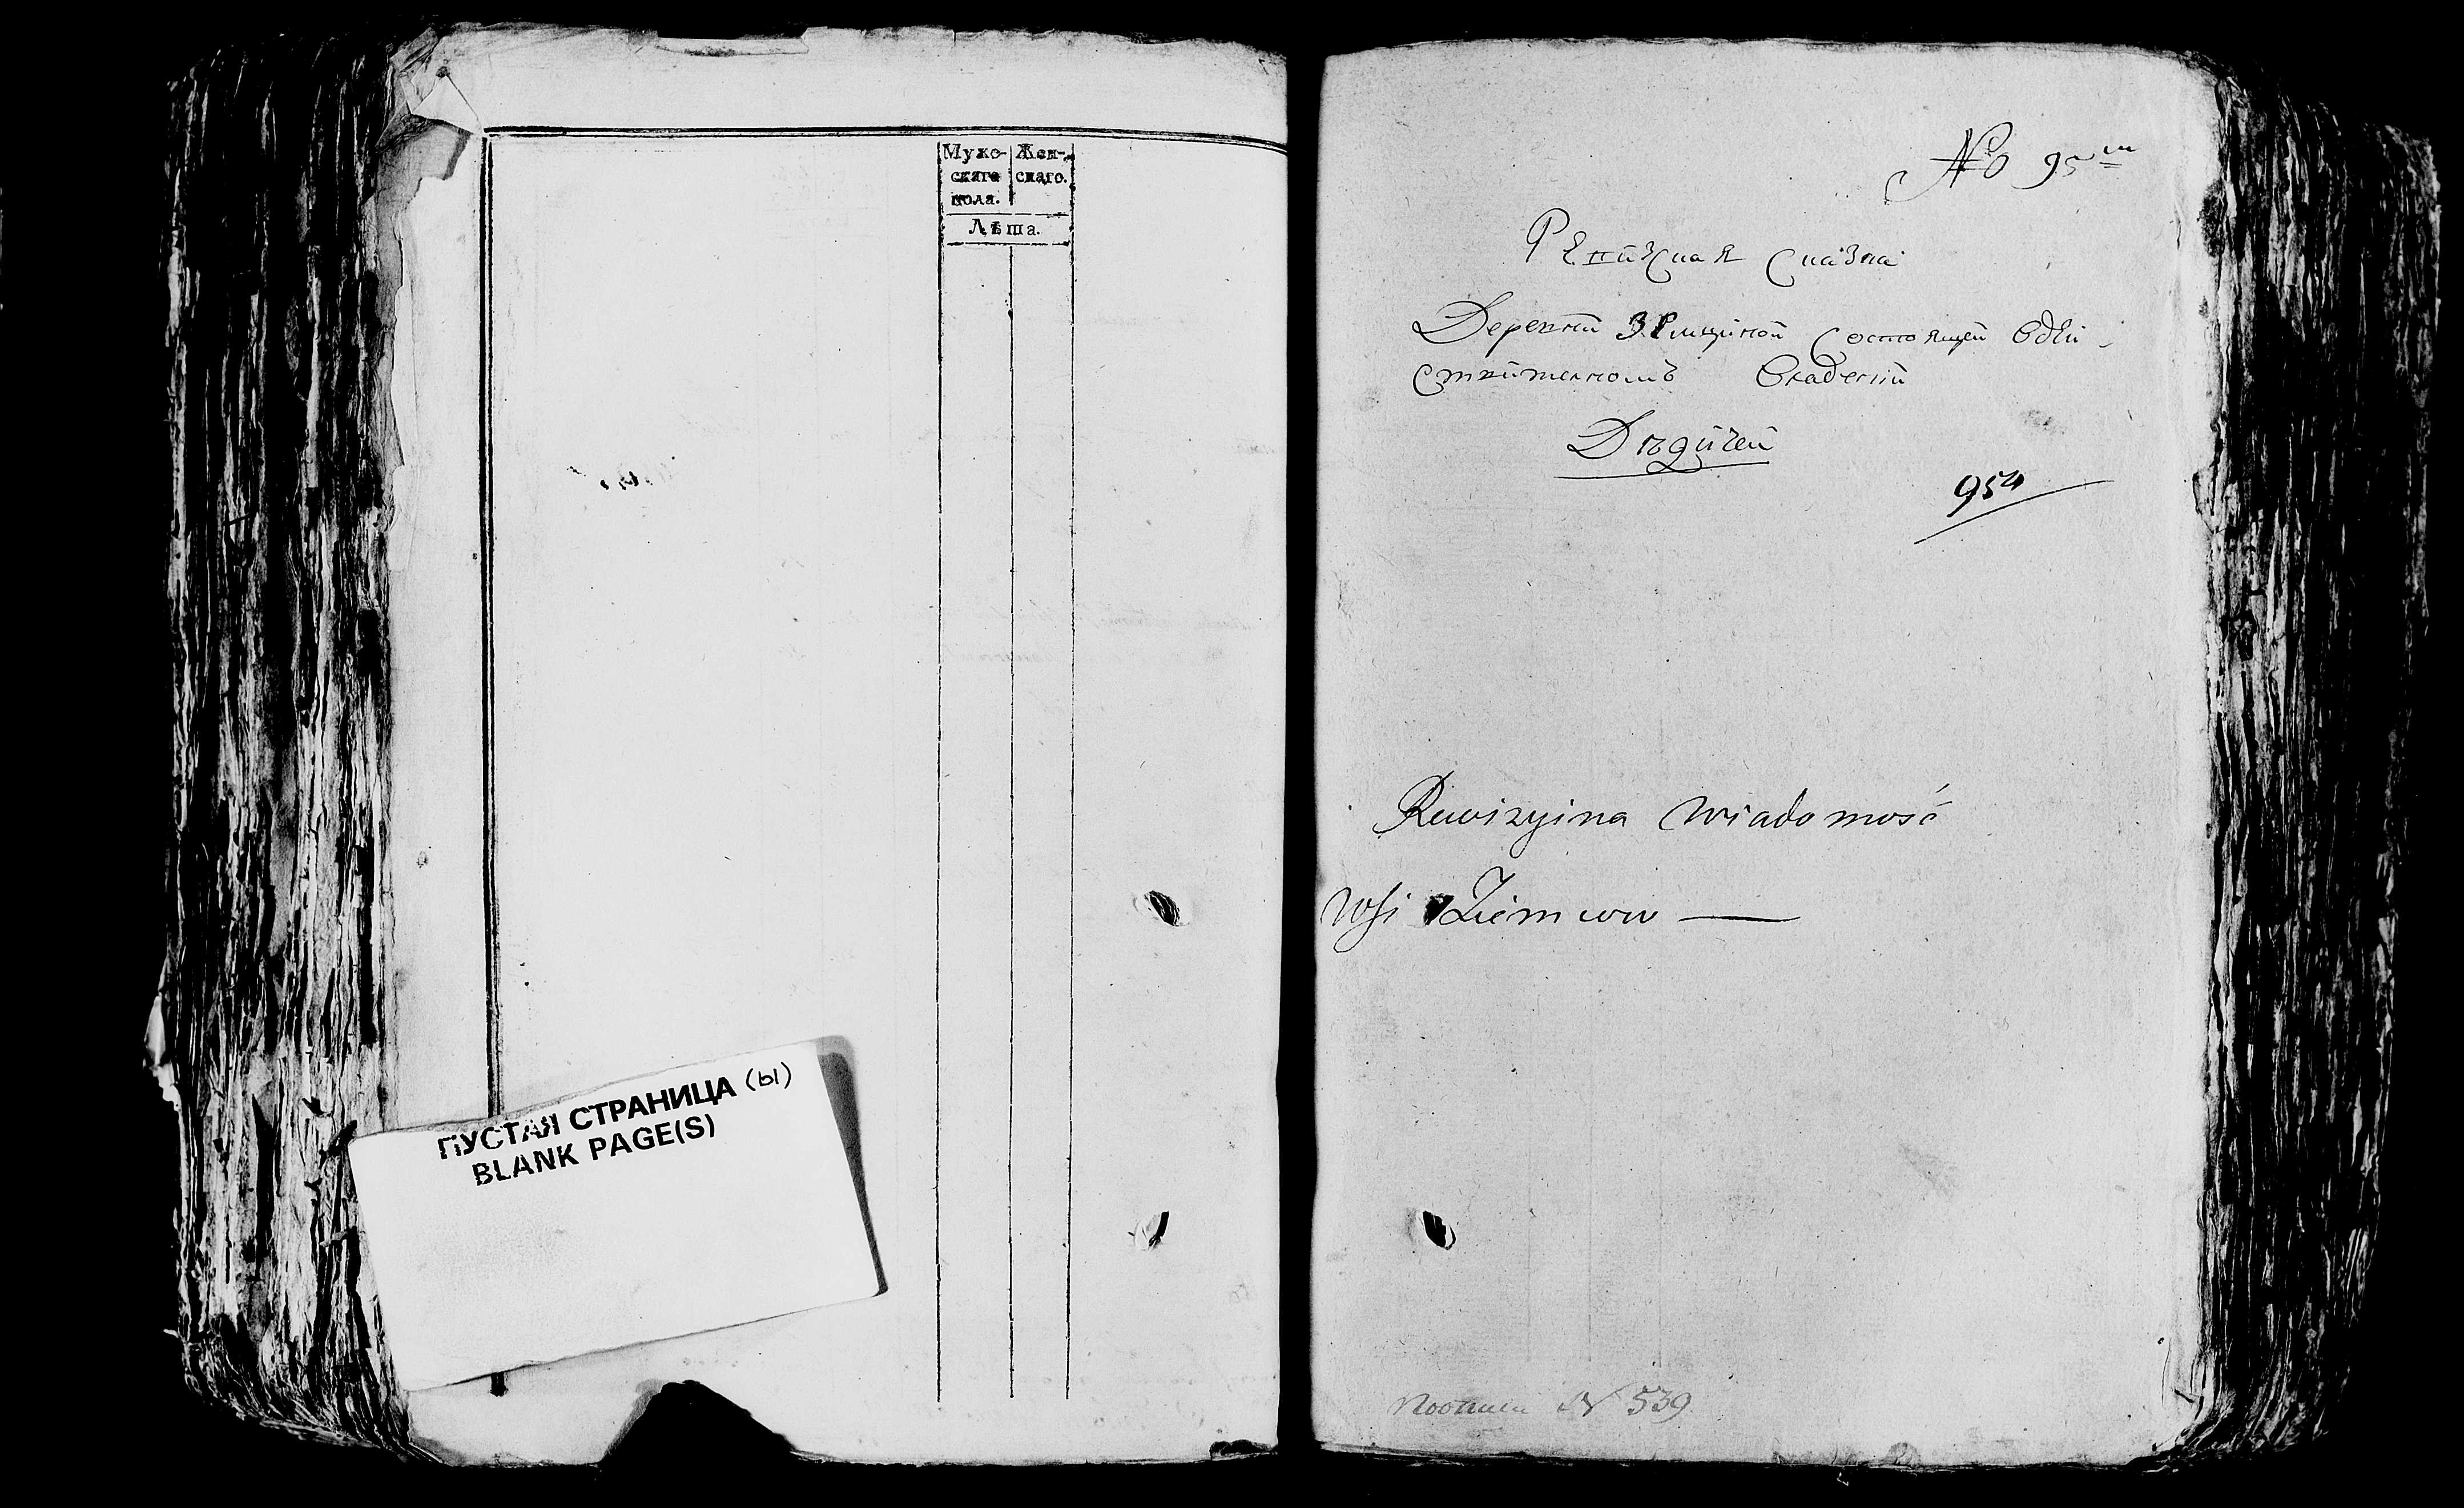 Муже-
скаго
пола.
Жен-
скаго.
Лѣта.
ПУСТАЯ СТРАНИЦА (ы)
BLANK PAGE(S)
No 95
Ревизская Сказка
Деревни Состоящей Вдѣй-
Ствителномъ Владенiи
954
Rewizyina Wiadomość
Wsi
N 539